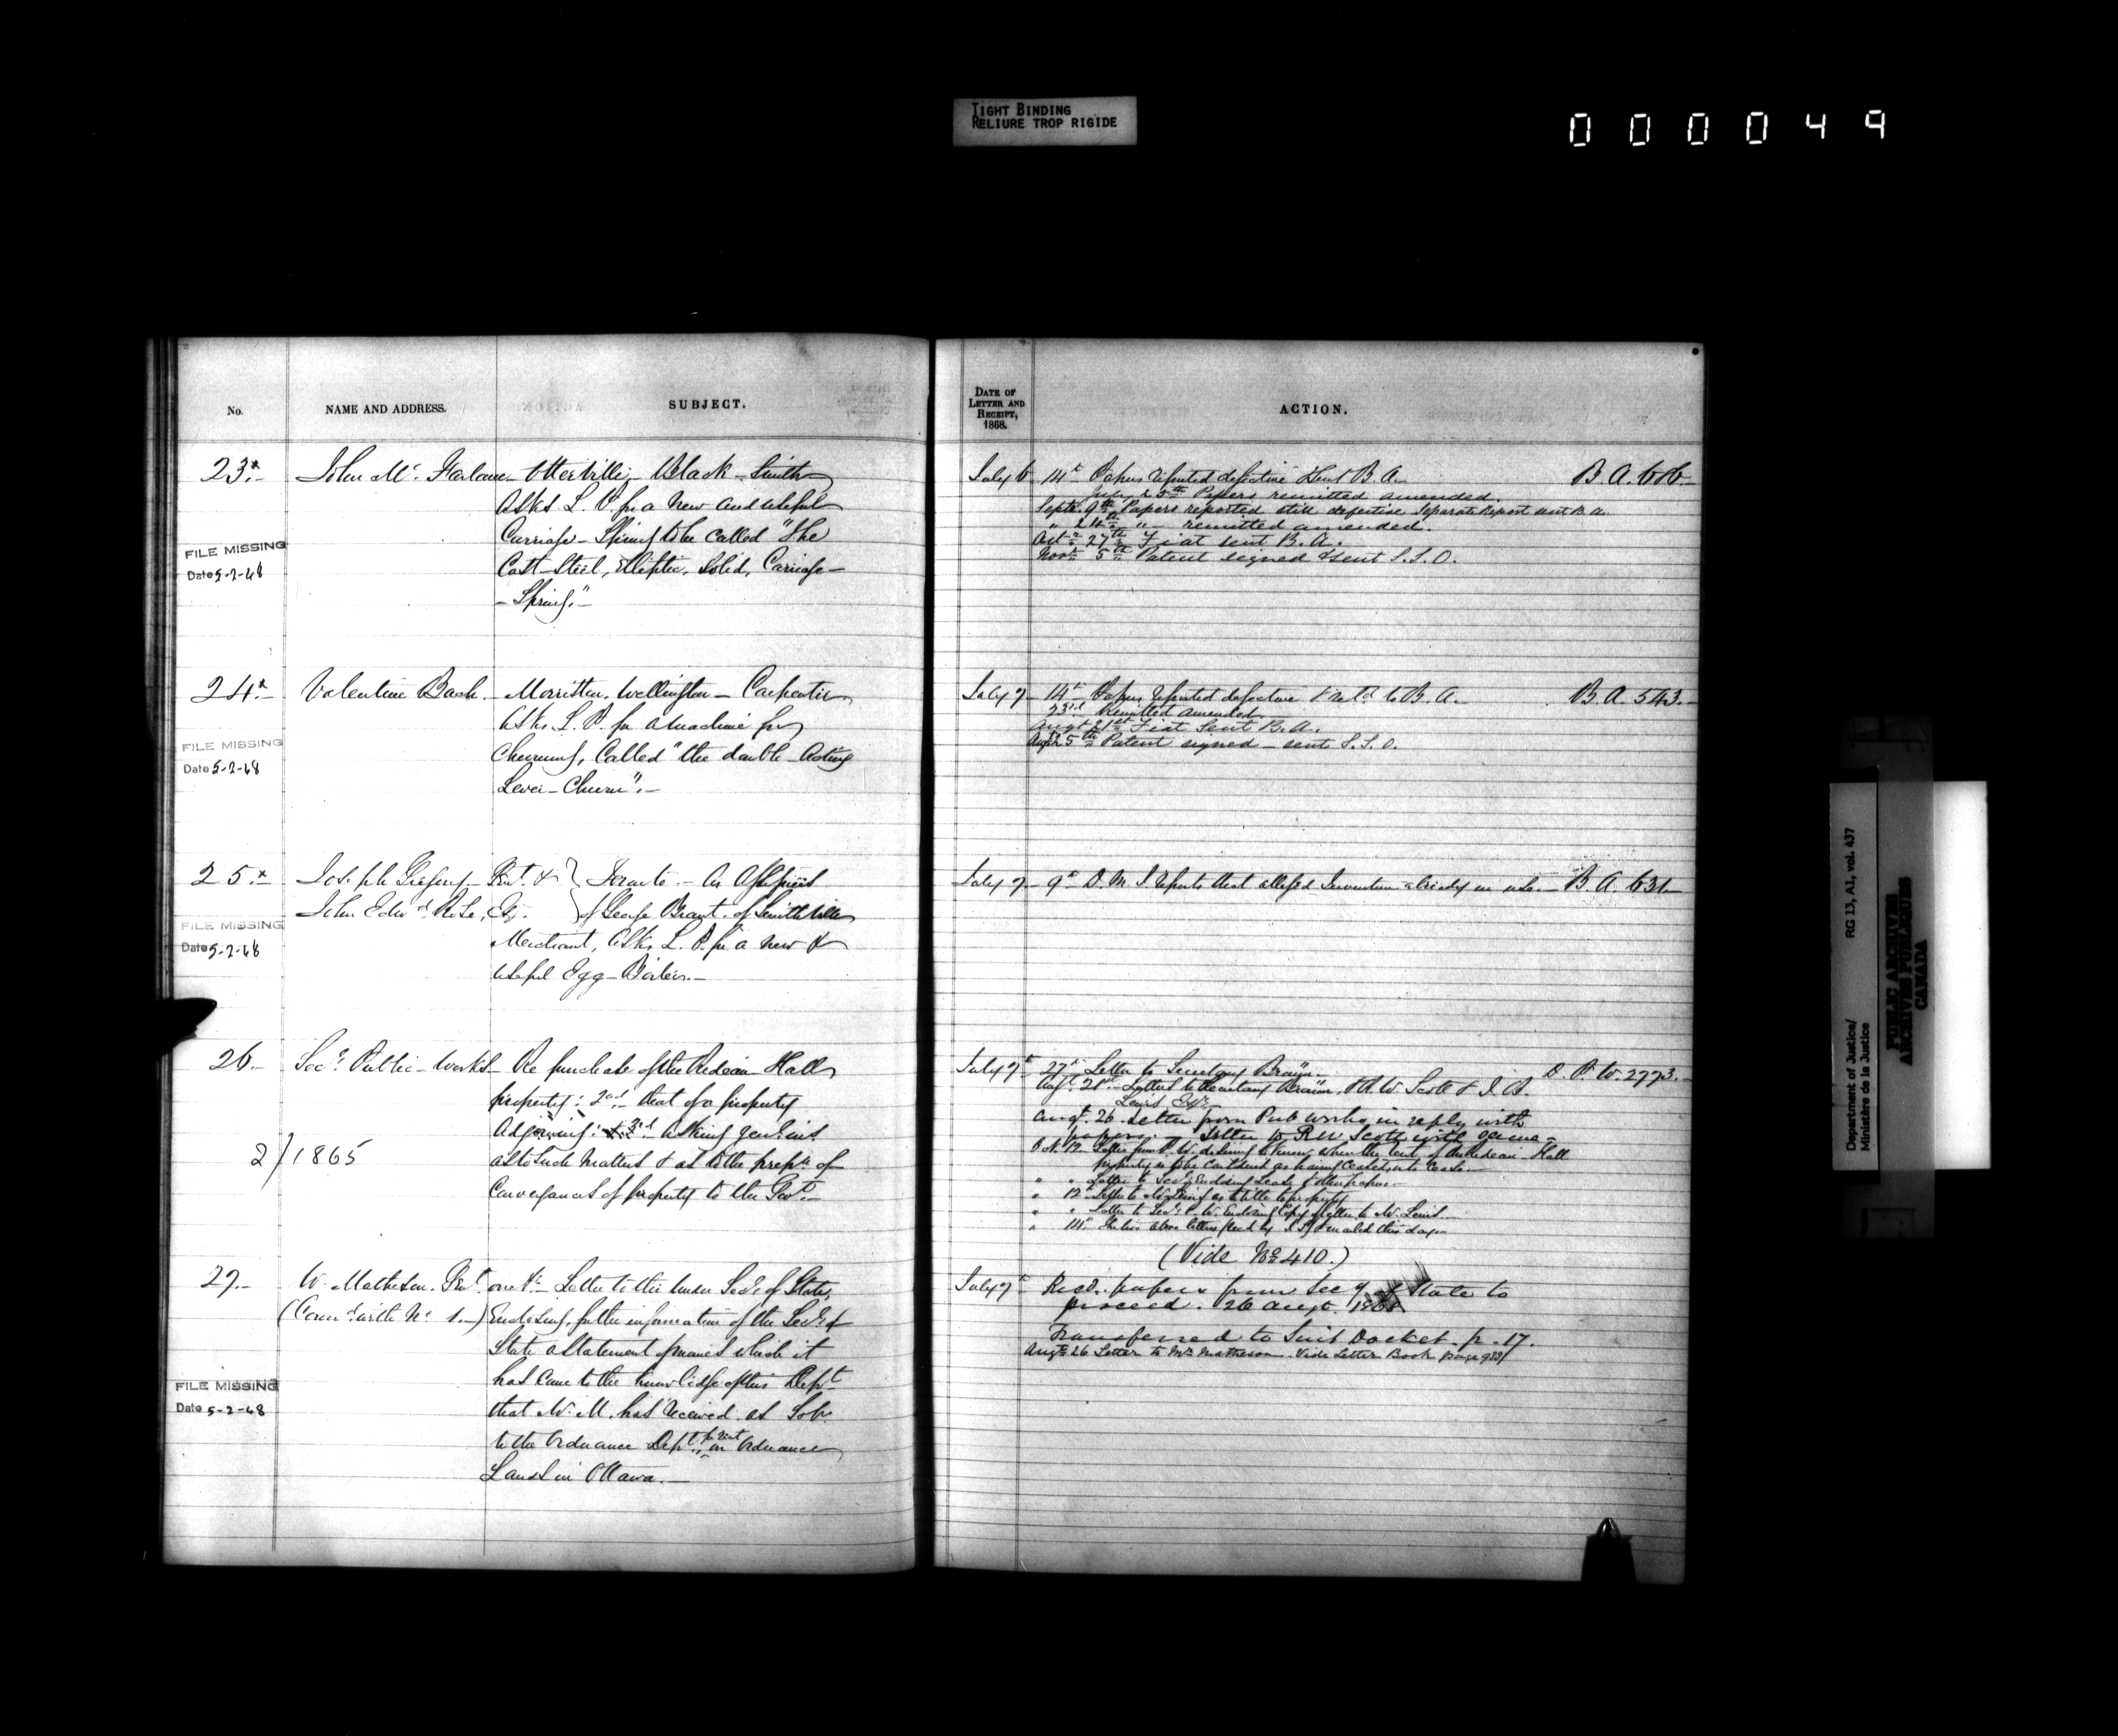 TIGHT BINDING
RELIURE TROP RIGIDE
000049
No.
NAME AND ADDRESS.
SUBJECT.
DATE OF
LETTER AND
RECEIPT,
1868.
ACTION.
23x.-
John Mc. Farlane - Otterville, Black-Smith
Asks L. P. for a New and useful
Carriage-Spring to be called "The
Cast-Steel, Elliptic, Solid, Carriage-
-Spring."-
FILE MISSING
Date 5-2-68
July 6
14th Papers reported defective & sent B.A.-
B.A. 616-
July 23th Papers remitted amended.
Septr. 9th Papers reported still defective Separate Report sent B.A.
" 24th " - remitted amended.
Octr 27th Fiat sent B.A.
Novr 5th Patent signed & sent S.S.O.
24x.-
Valentine Bach. - Morriston, Wellington - Carpenter
Asks L. P. for a machine for
Churning, Called "the double-Acting
Lever-Churn".-
FILE MISSING
Date 5-2-68
July 7-
14th Papers reported defective & ret'd to B.A.-
B.A. 543.-
23rd remitted amended
Augt 21st Fiat Sent B.A.
5th Patent signed - sent S.S.O.
25x.-
Joseph Gregory - Gent. & } Toronto - As Assignees
John Edwd Rose, Esq. } of George Brant. of Smithville
Merchant, Asks L. P. for a new &
useful Egg-Boiler.-
FILE MISSING
Date 5-2-68
July 7-
9th D.M.J. reports that alleged Invention already in use.-
B.A. 631-
26.-
Secy. Public-Works - Re purchase of the Rideau Hall
property: 2nd.- that of a property
Adjoining: & 3rd. asking genl. inst.
as to such matters & as to the prepn of
Conveyances of property to the Govt.-
2/1865
July 7th
27th Letter to Secretary Braün.-
D.P.W. 2773.-
Augt. 21st Letters to Secretary Braün, R.W. Scott & J.B.
Lewis Esqr.
Augt. 26 Letter from Pub Works in reply with
papers. Letter to R.W. Scott with same-
Oct. 12 Letter from P.W. desiring to know when the rent of the Rideau Hall
property is to be considered as having ceased, into Lease-
" " Letter to Secy. Enclosing Lease & other papers.-
" 12th Letter to Mr Lewis as to title to property
" " Letter to Secy. P.W. Enclosing Copy of letter to Mr. Lewis.-
" 14th The two above letters
this day-
(Vide No. 410.)
27.-
W. Matheson. Gent. one &c.- Letter to the Under Secy. of State,
(Conn'd with No. 1.-) Enclosing, for the information of the Secy. of
State a Statement of monies which it
has Come to the knowledge of this Dept
that Mr. M. has received as Solr.
to the Ordnance Dept., for rent on Ordnance
Lands in Ottawa.-
FILE MISSING
Date 5-2-68
July 7th
Recd. papers from Secy of State to
proceed. 26 Augt. 1868
Transferred to Suit Docket p. 17.
Augt 26 Letter to Mr Matheson. Vide Letter Book page 933/
Department of Justice/
Ministère de la Justice
RG 13, A1, vol. 437
PUBLIC ARCHIVES
ARCHIVES PUBLIQUES
CANADA